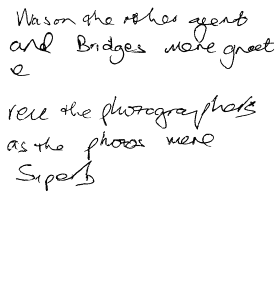 Wason the other agent
and Bridges were great
e
rere the photographers
as the photos were
Superb